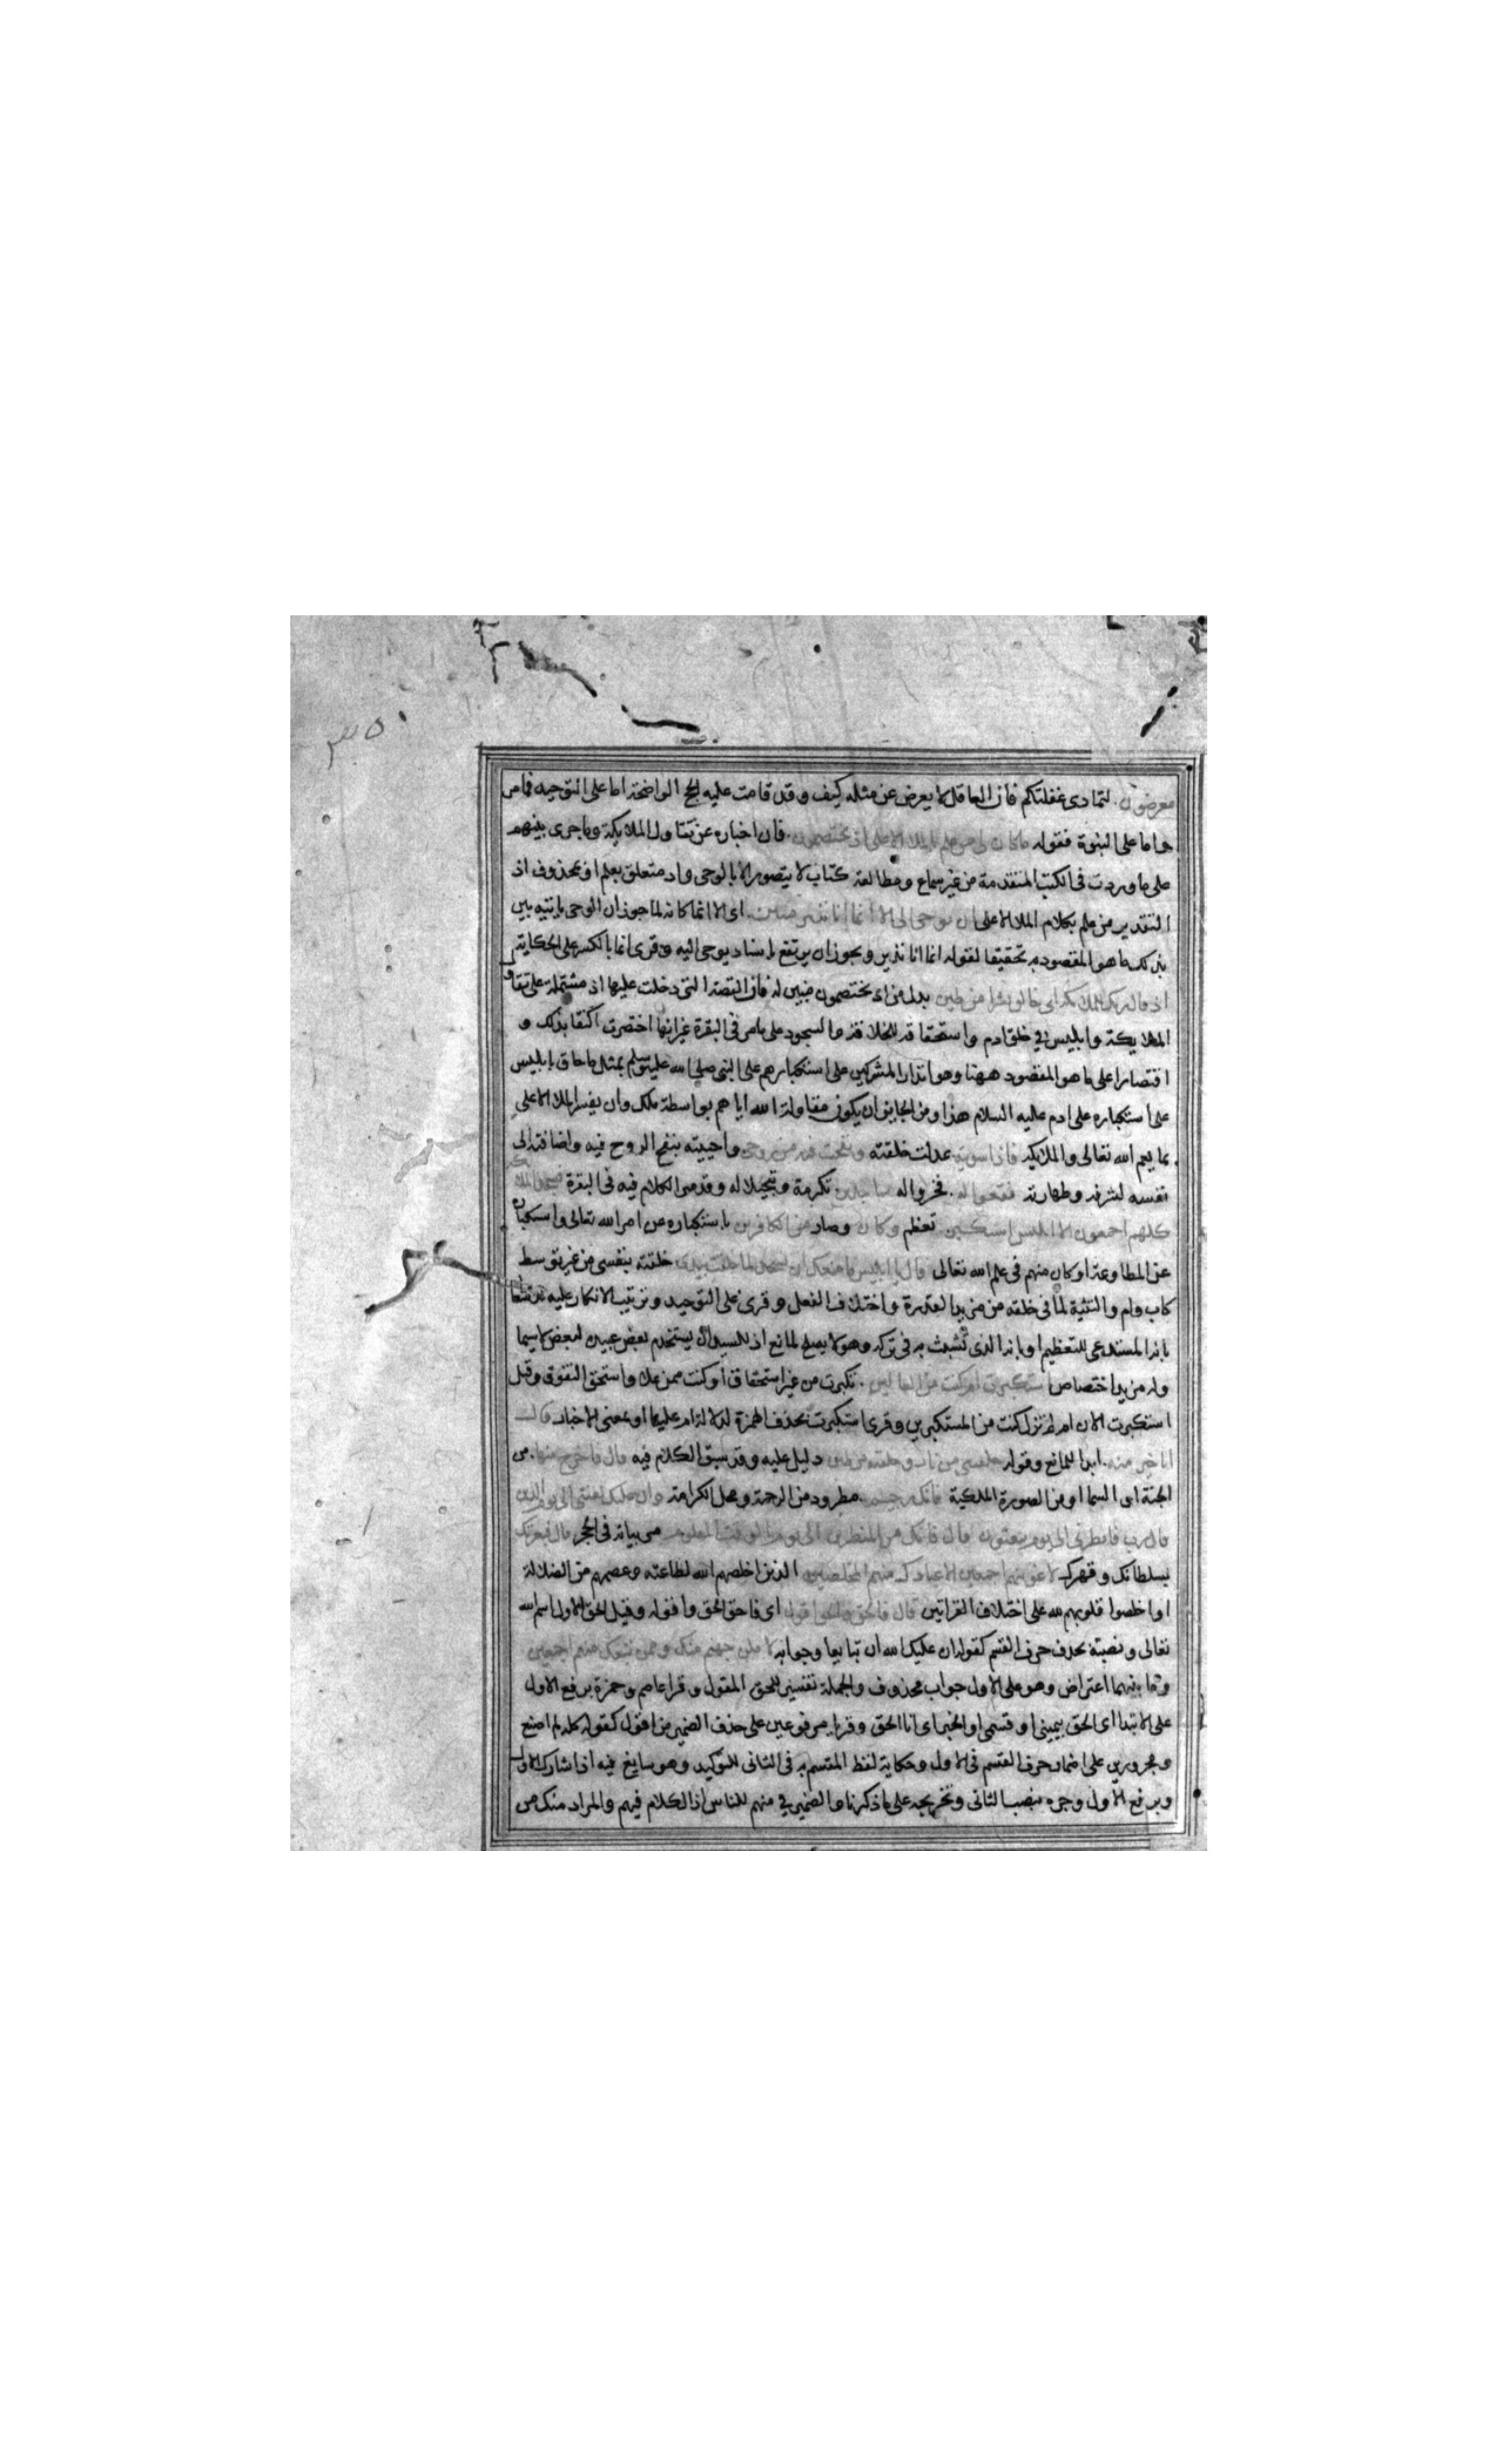 معرضون. لتمادى غفلتكم فان العاقل لا يعرض عن مثله كيف وقد قامت عليه الحج الواضحة اما على التوحيد فما مر
واما على النبوة فقوله ماكان لى من علم بالملا الاعلى اذ يختصمون. فان اخباره عن تقاول الملايكة وماجرى بينهم
على ماوردت فى الكتب المتقدمة من غير سماع ومطالعة كتاب لا يتصور الا بالوحى واذ متعلق بعلم او بمحذوف اذ
التقدير من علم بكلام الملا الاعلى ان يوحى الى الا انما انا نذير مبين. اى الا انما كانه لما جوز ان الوحى ياتيه بين
بذلك ما هو المقصود به تحقيقا لقوله انما انا نذير ويجوز ان يرتفع باسناد يوحى اليه وقرى انما بالكسر على الحكاية
اذ قال ربك للملايكة انى خالق بشرا من طين بدل من اذ يختصمون مبين له فان القصة التى دخلت عليها اذ مشتملة على تقاول
الملايكة وابليس فى خلق ادم واستحقاقه للخلافة والسجود على مامر فى البقرة غير انها اختصرت اكتفا بذلك و
اقتصارا على ما هو المقصود ههنا وهو انذار المشركين على استكبارهم على النبى صلى الله عليه وسلم بمثل ماحاق بابليس
على استكباره على ادم عليه السلام هذا ومن الجايز ان يكون مقاولة الله اياهم بواسطة ملك وان يفسر الملا الاعلى
بما يعم الله تعالى والملايكة فاذا سويته عدلت خلقته ونفخت فيه من روحى واحييته بنفخ الروح فيه واضافته الى
نفسه لشرفه وطهارته فقعوا له. فخروا له ساجدين تكرمة وتبجيلا له وقد مر الكلام فيه فى البقرة فسجد الملايكة
كلهم اجمعون الا ابليس استكبر تعظم وكان وصار من الكافرين باستكباره عن امر الله تعالى واستكباره
عن المطاوعة او كان منهم فى علم الله تعالى قال يا ابليس ما منعك ان تسجد لما خلقت بيدى خلقته بنفسى من غير توسط
كاب وام والتثنية لما فى خلقه من مزيد القدرة واختلاف الفعل وقرى على التوحيد وترتيب الانكار عليه
بانه المستدعى للتعظيم او بانه الذى تشبث به فى تركه وهو لا يصلح لمانع اذ للسيد ان يستخدم بعض عبيده لبعض لا سيما
وله مزيد اختصاص استكبرت ام كنت من العالين. تكبرت من غير استحقاق او كنت ممن علا واستحق التفوق وقيل
استكبرت الان ام لم تزل كنت من المستكبرين وقرى استكبرت بحذف الهمزة لدلالة ام عليها او بمعنى الاخبار قال
انا خير منه. ابدا للمانع وقوله خلقتنى من نار وخلقته من طين دليل عليه وقد سبق الكلام فيه قال فاخرج منها. من
الجنة او السما او من الصورة الملكية فانك رجيم. مطرود من الرحمة ومحل الكرامة وان عليك لعنتى الى يوم الدين
قال رب فانظرنى الى يوم يبعثون قال فانك من المنظرين الى يوم الوقت المعلوم مر بيانه فى الحجر قال فبعزتك
بسلطانك وقهرك لاغوينهم اجمعين الا عبادك منهم المخلصين الذين اخلصهم الله لطاعته وعصمهم من الضلالة
او اخلصوا قلوبهم لله على اختلاف القراتين قال فالحق والحق اقول اى فاحق الحق واقوله وقيل الحق الاول اسم الله
تعالى ونصبه بحذف حرف القسم كقوله ان عليك الله ان تبايعا وجوابه لاملان جهنم منك وممن تبعك منهم اجمعين
وما بينهما اعتراض وهو على الاول جواب محذوف والجملة تفسير للحق المقول وقرا عاصم وحمزة برفع الاول
على الابتدا اى الحق يمينى او قسمى او الخبر اى انا الحق وقريا مرفوعين على حذف الضمير من اقول كقوله كله لم اصنع
ومجرورين على اضمار حرف القسم فى الاول وحكاية لفظ المقسم به فى الثانى للتوكيد وهو سايغ فيه اذا شارك الاول
وبرفع الاول وجره ونصب الثانى وتخريجه على ماذكرنا والضمير فى منهم للناس اذ الكلام فيهم والمراد منك من